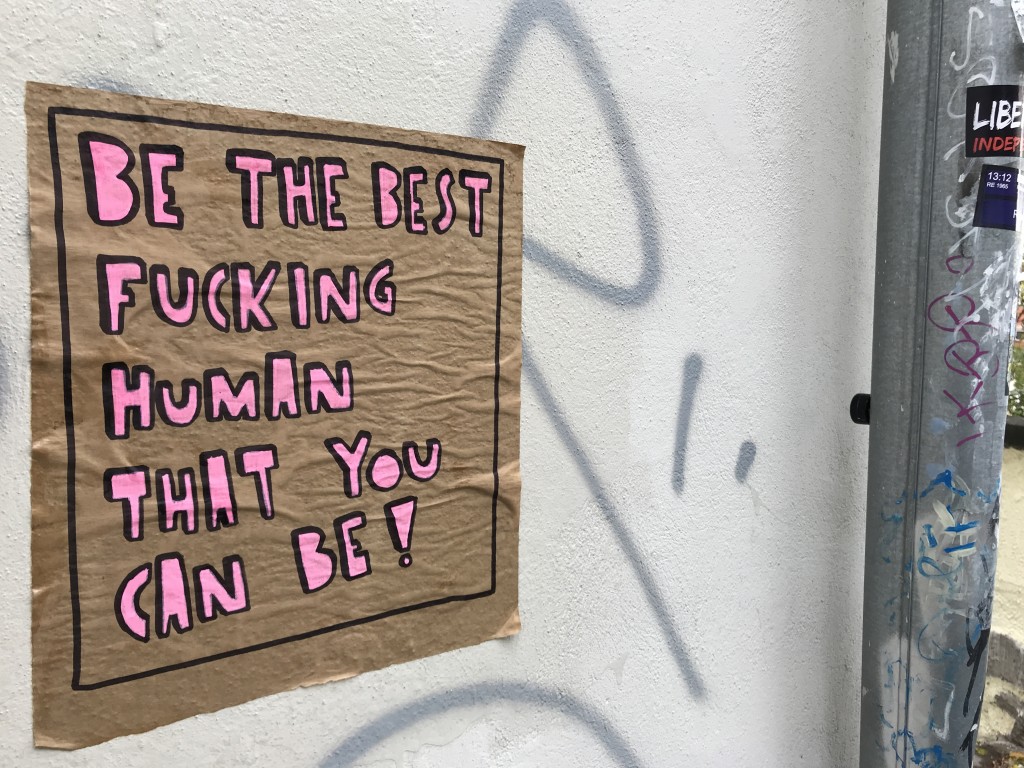 BE THE BEST
FUCKING
HUMAN
THAT YOU
CAN BE!
LIBE
INDEP
13:12
RE 1965